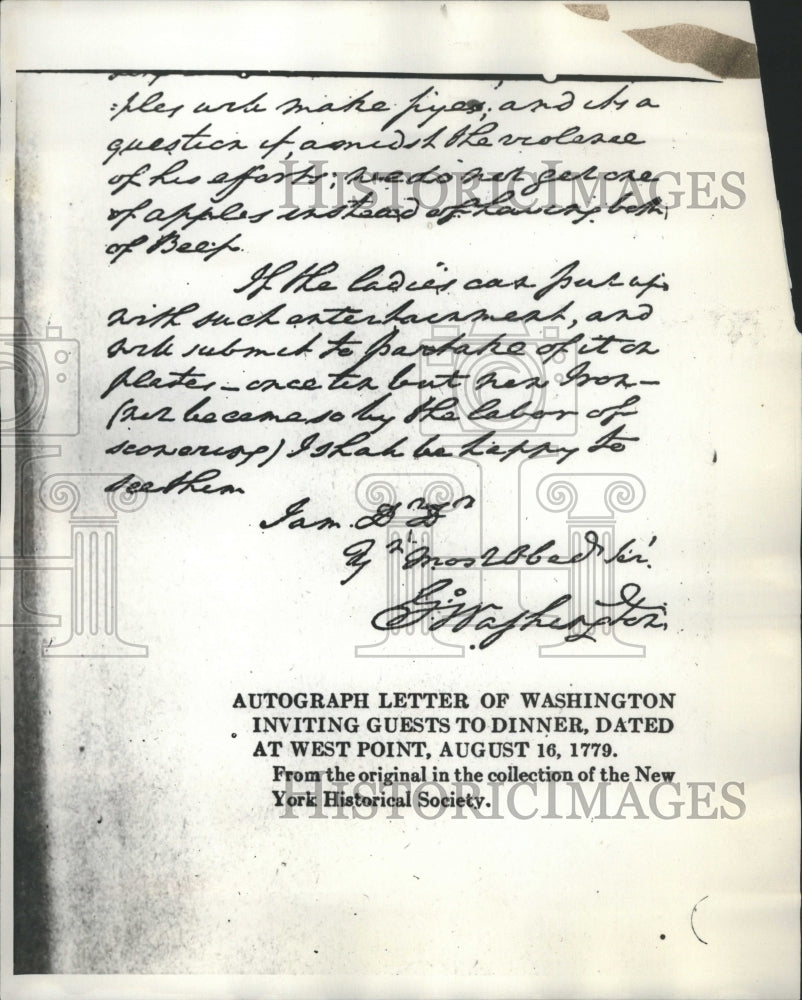 ples will make pyes; and its a
question if, amidst the violence
of his efforts, we do not get one
of apples instead of having both
of Beef.
If the ladies can put up
with such entertainment, and
will submit to partake of it on
plates—once tin but now Iron—
(not become so by the labor of
scowering) I shall be happy to
see them.
I am Dr Dr
Yr Most Obed Ser.
Go: Washington
AUTOGRAPH LETTER OF WASHINGTON
INVITING GUESTS TO DINNER, DATED
AT WEST POINT, AUGUST 16, 1779.
From the original in the collection of the New
York Historical Society.
HISTORICIMAGES
HISTORICIMAGES